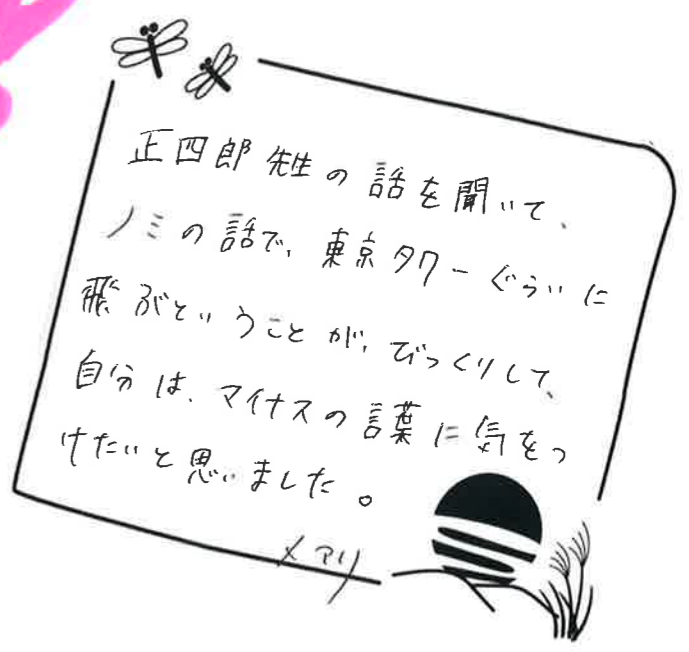 正四郎先生の話を聞いて、
ノミの話で、東京タワーぐらいに
飛ぶということが、びっくりして、
自分は、マイナスの言葉に気をつ
けたいと思いました。
メアリ